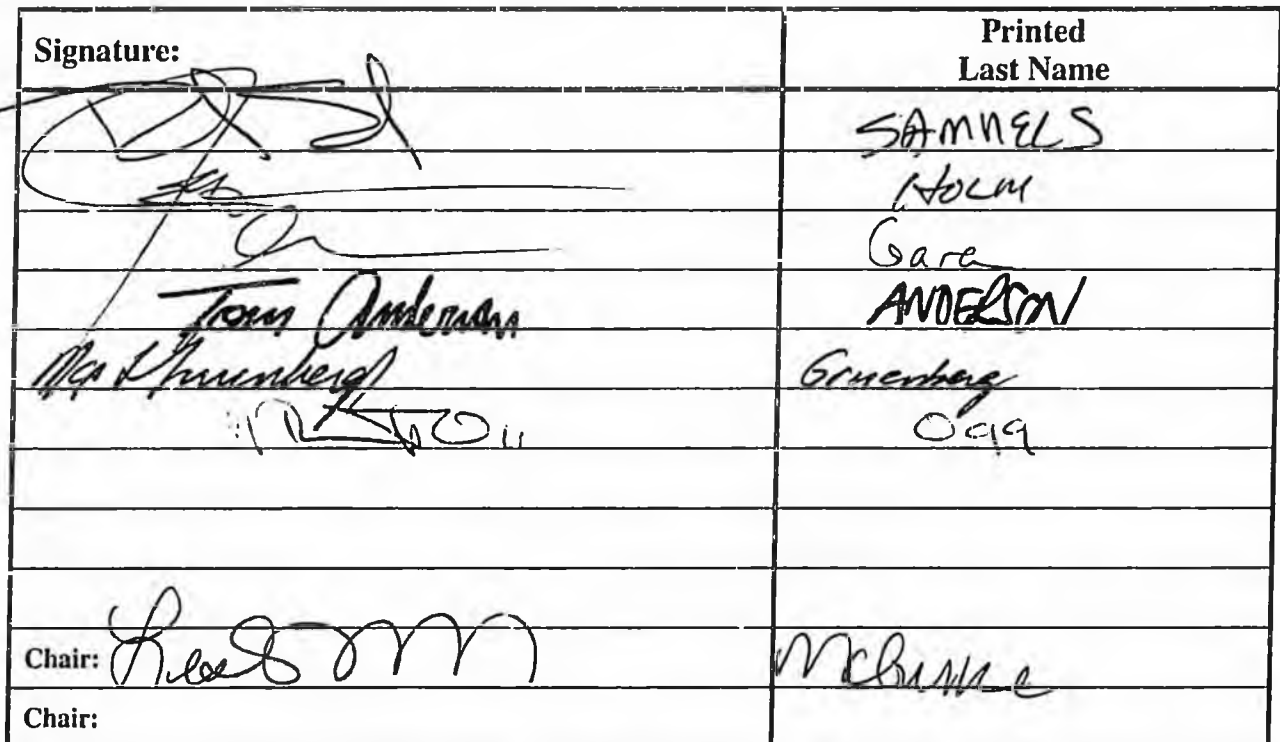 Signature: Printed Last Name
SAMUELS
HOLM
Gara
Tom Anderson ANDERSON
Max Gruenberg Gruenberg
Ogg
Chair: McGuire
Chair: